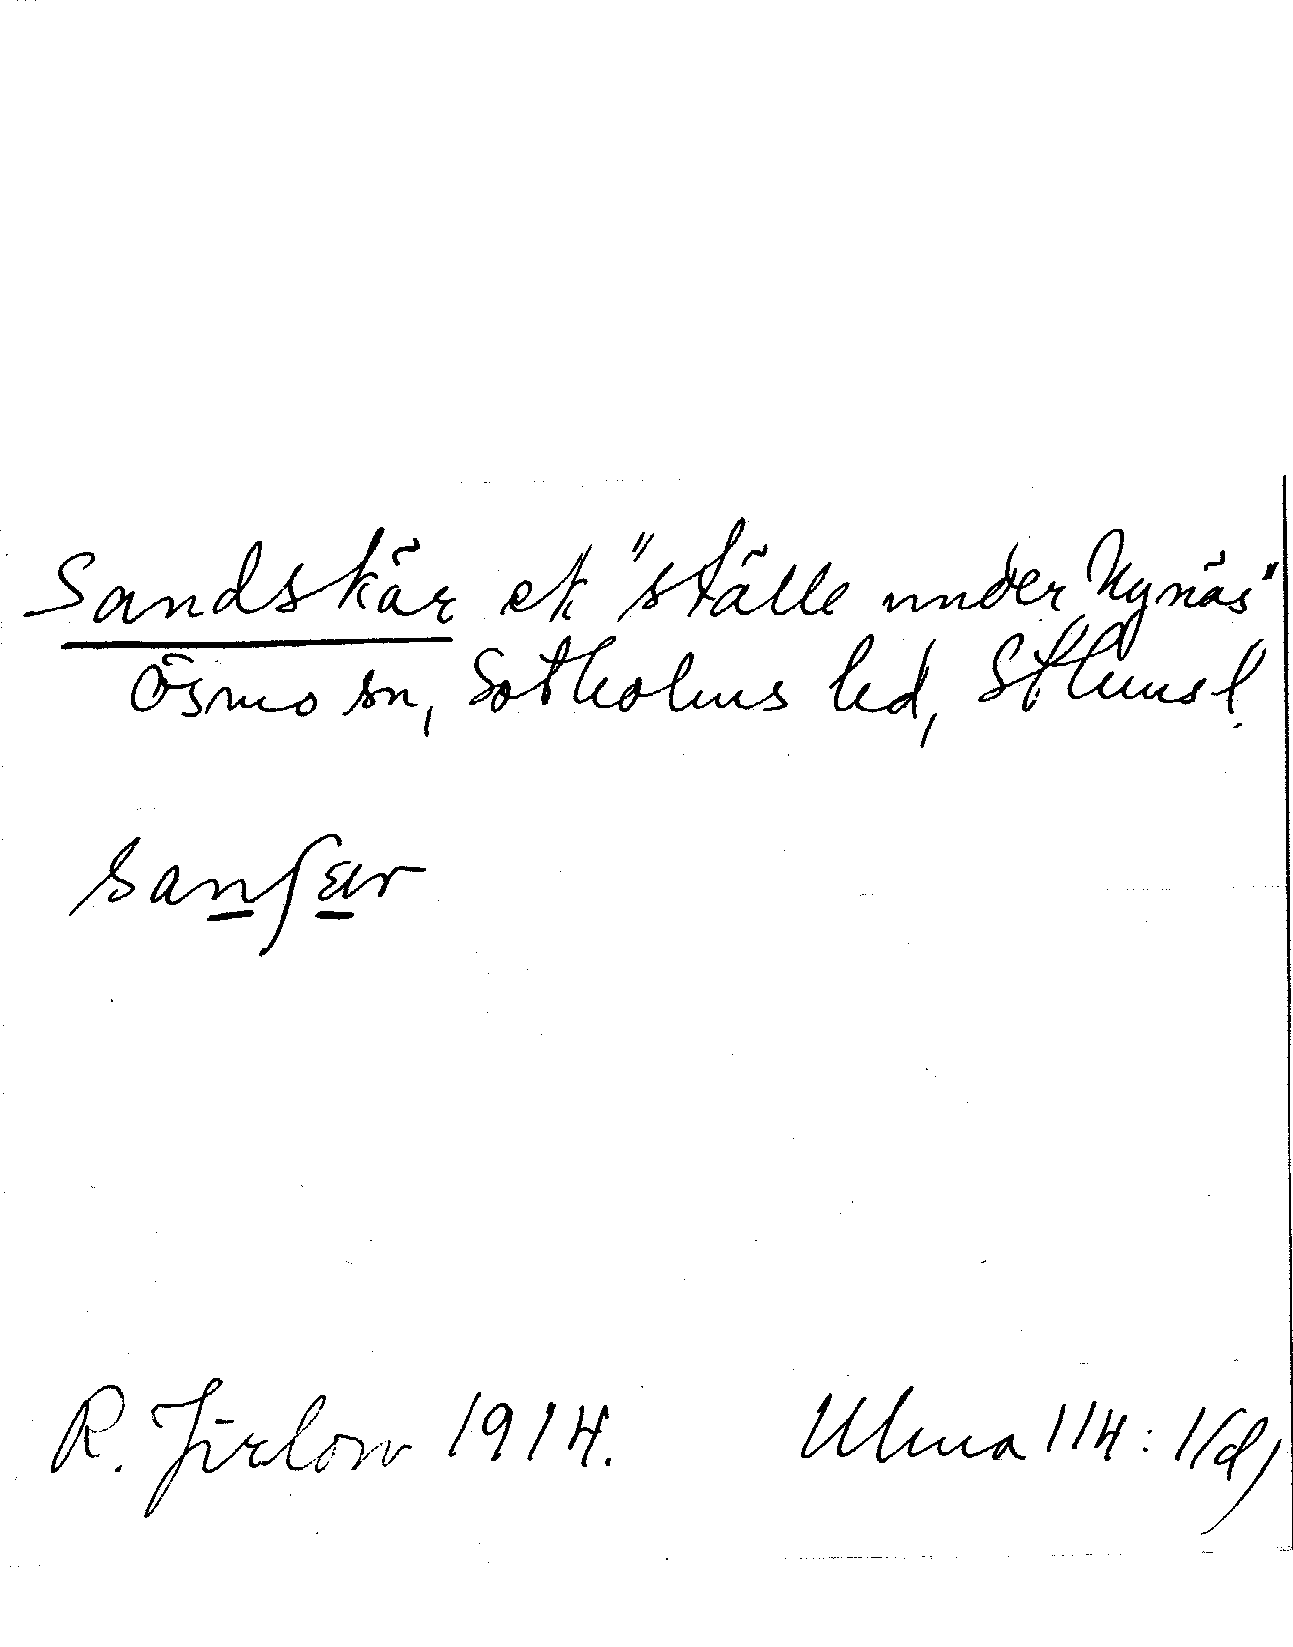 Sandskär ek "ställe under Nynäs"
Ösmo sn, Sotholms hd, Sthms l.
sanʃær
R. Jirlow 1914. Ulma 114:1(d)